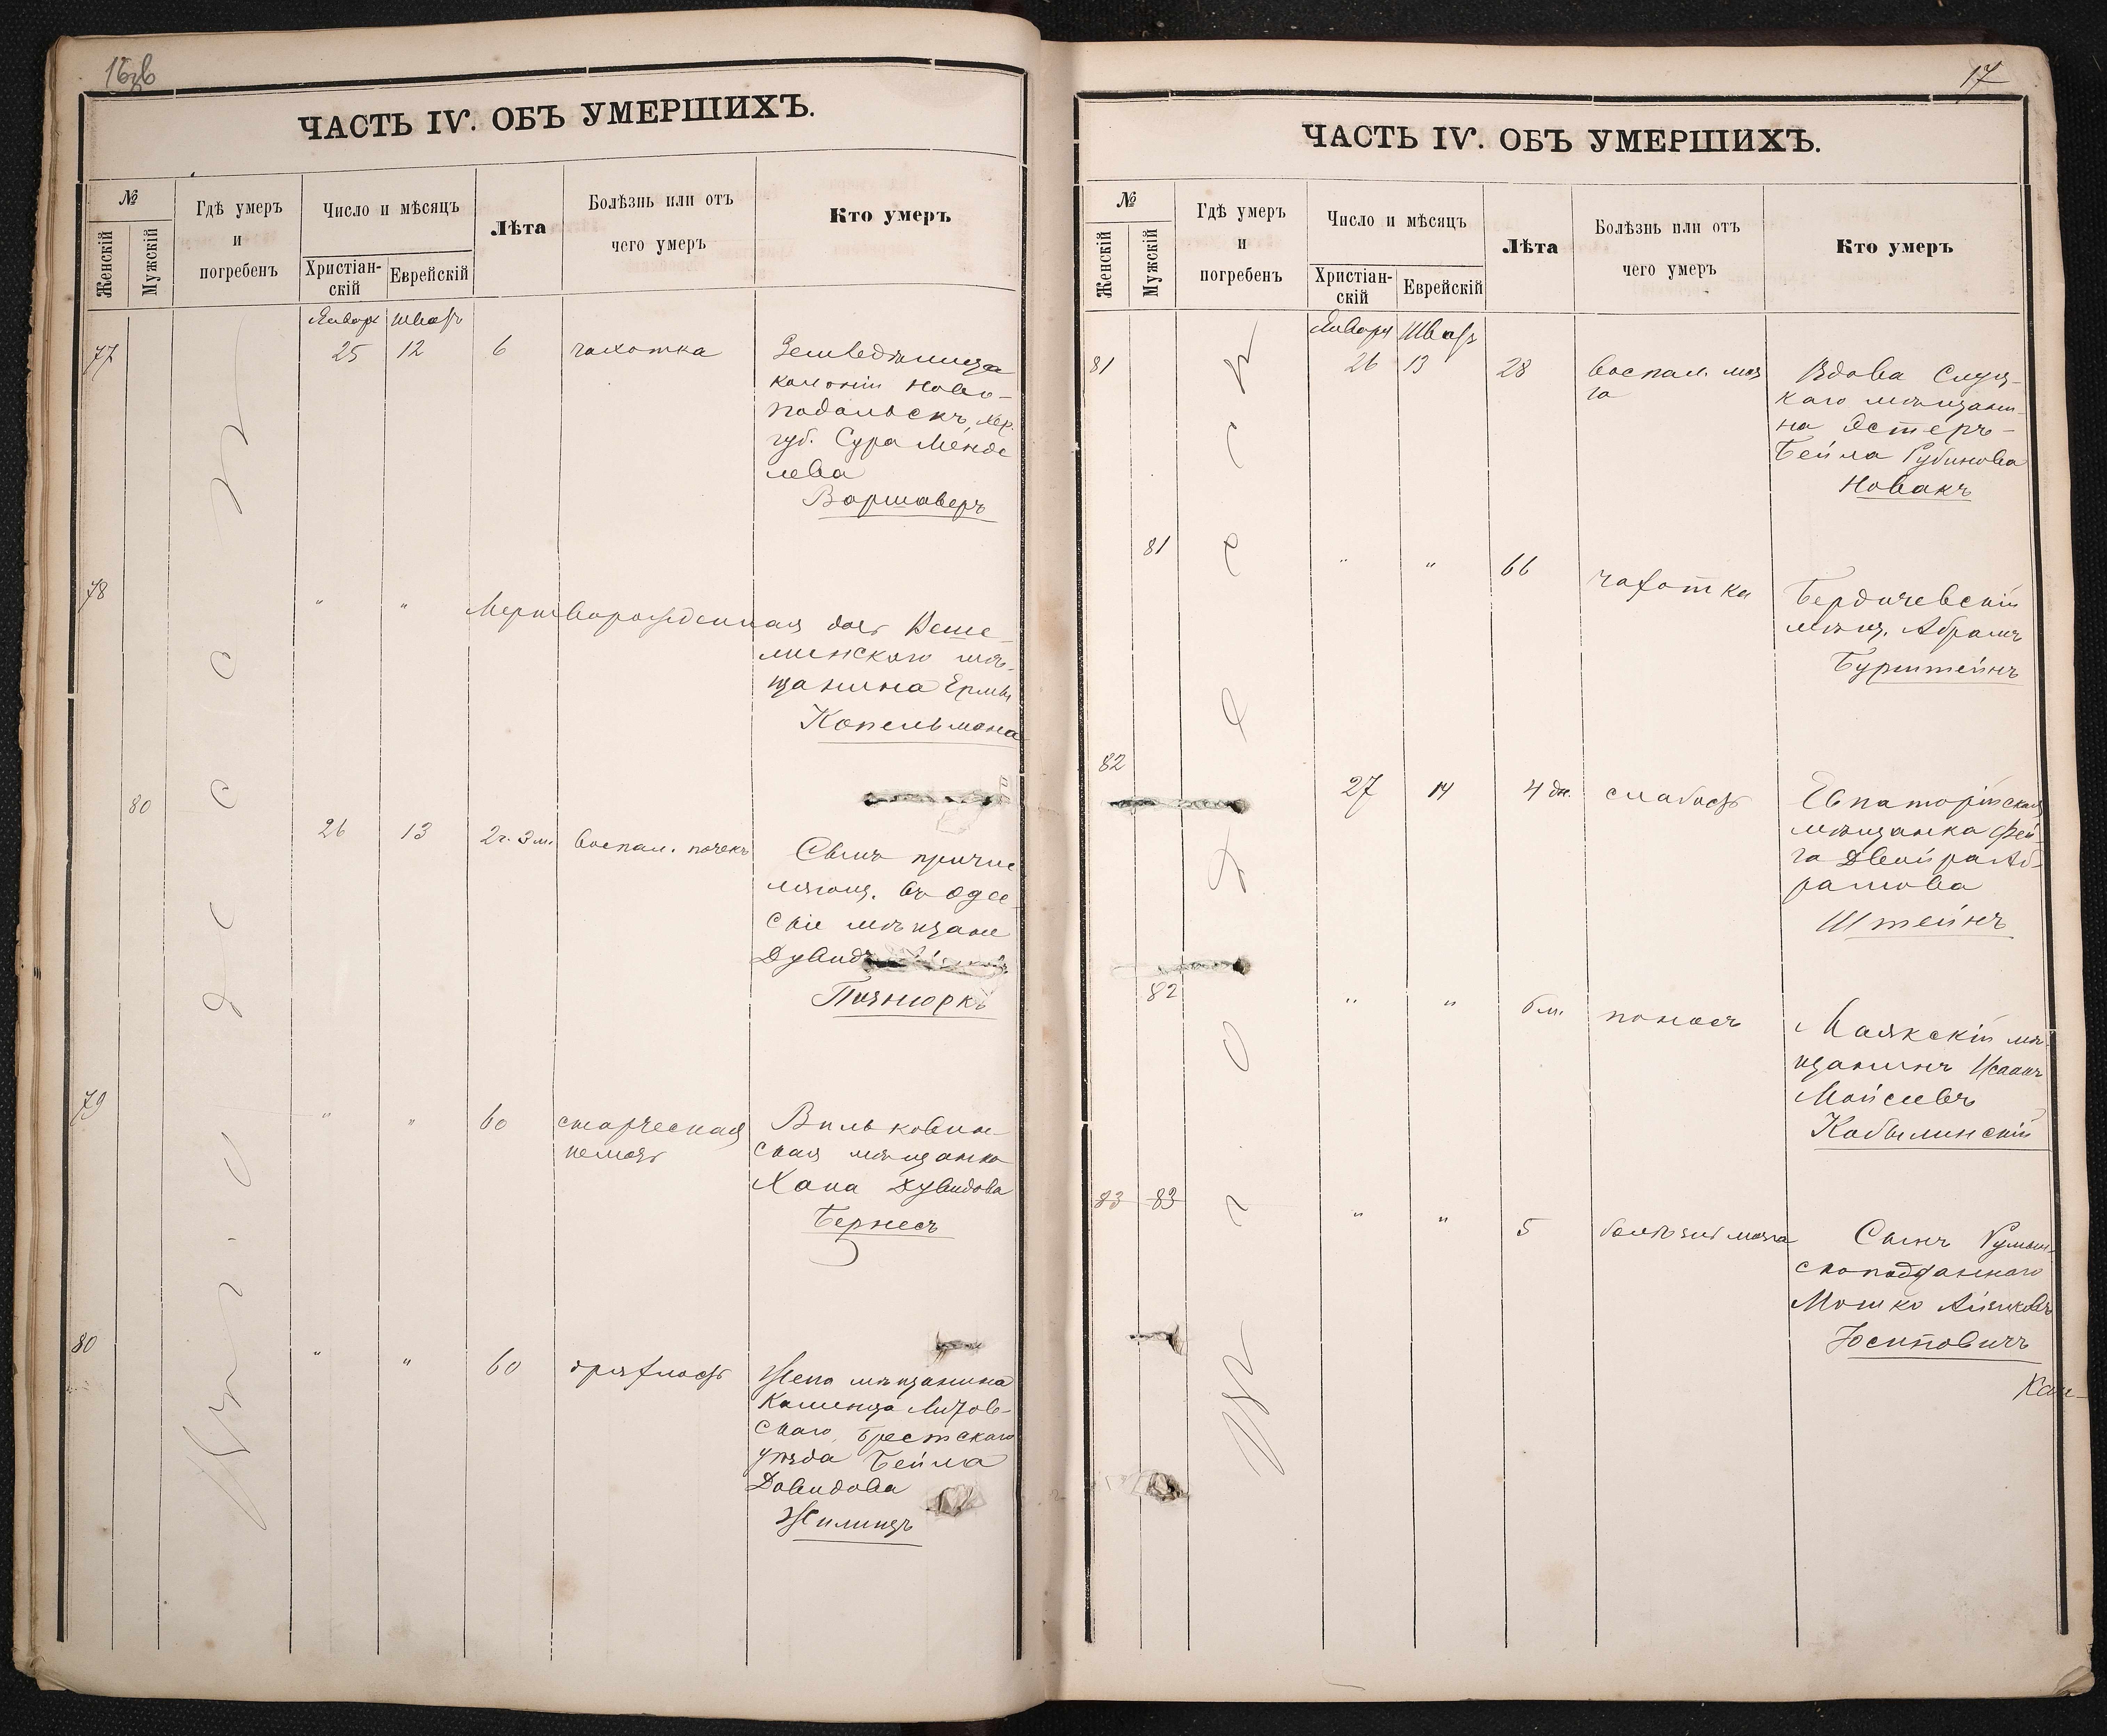 ЧАСТЬ IV. ОБЪ УМЕРШИХЪ.
№
Женскій
Мужскій
Гдѣ умеръ
и
погребенъ
Число и мѣсяцъ
Христіан-
скій
Еврейскій
Лѣта
Болѣзнь или отъ
чего умеръ
Кто умеръ
Январь Шватъ
77 25 12 6 чахотка Земледѣлица
колоніи Ново-
подольскъ, Хер.
губ. Сура Менде
лева
Варшаверъ
78 " " Мерворожденная дочь
мѣ-
щанина
Копельмана
80 26 13 2г. 3м. воспал. почекъ Сынъ причис
ляющ. въ Одес
скіе мѣщане
Дувидъ
79 " " 60 старческая Вильковиш-
немощь ская мѣщанка
Хана Дувидова
Бернесъ
80 " " 60 дряхлость Жена мѣщанина
Каменца Литов-
скаго, Брестскаго
уѣзда Бейла
Давидова
Жилинъ
Въ Одессѣ
17
ЧАСТЬ IV. ОБЪ УМЕРШИХЪ.
№
Женскій
Мужскій
Гдѣ умеръ
и
погребенъ
Число и мѣсяцъ
Христіан-
скій
Еврейскій
Лѣта
Болѣзнь или отъ
чего умеръ
Кто умеръ
Января Шватъ
81 26 13 28 воспал. моз Вдова Слуц-
га каго мѣщани-
на Эстеръ-
Бейла Рубинова
Новакъ
81 " " 66 чахотка Бердичевскій
мѣщ. Абрамъ
Бурштейнъ
82 27 14 4 дн. слабость Евпаторійская
мѣщанка Фей
га Двойра Аб-
рамова
Штейнъ
82 " " 6м. поносъ Маякскій мѣ-
щанинъ Исаакъ
Мойсеевъ
Кобылинскій
83 83 " " 5 болѣзнь мозга Сынъ Румын-
скоподданнаго
Мошко
Юсиповичъ